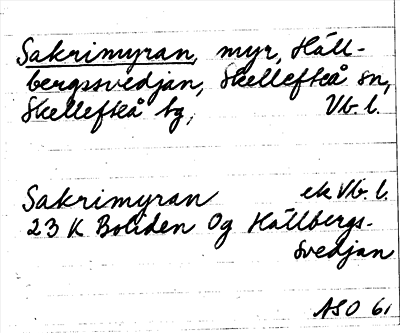 Sakrimyran, myr, Häll-
bergssvedjan, Skellefteå sn,
Skellefteå tg, Vb. l.
Sakrimyran ek Vb. l.
23 K Boliden Og Hällbergs-
svedjan
ASO 61